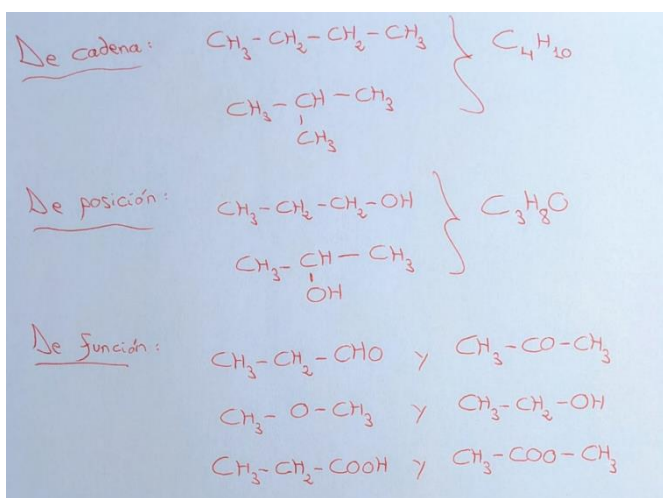 De cadena: CH₃-CH₂-CH₂-CH₃ } C₄H₁₀
CH₃-CH-CH₃
CH₃
De posición: CH₃-CH₂-CH₂-OH } C₃H₈O
CH₃-CH-CH₃
OH
De función: CH₃-CH₂-CHO y CH₃-CO-CH₃
CH₃-O-CH₃ y CH₃-CH₂-OH
CH₃-CH₂-COOH y CH₃-COO-CH₃